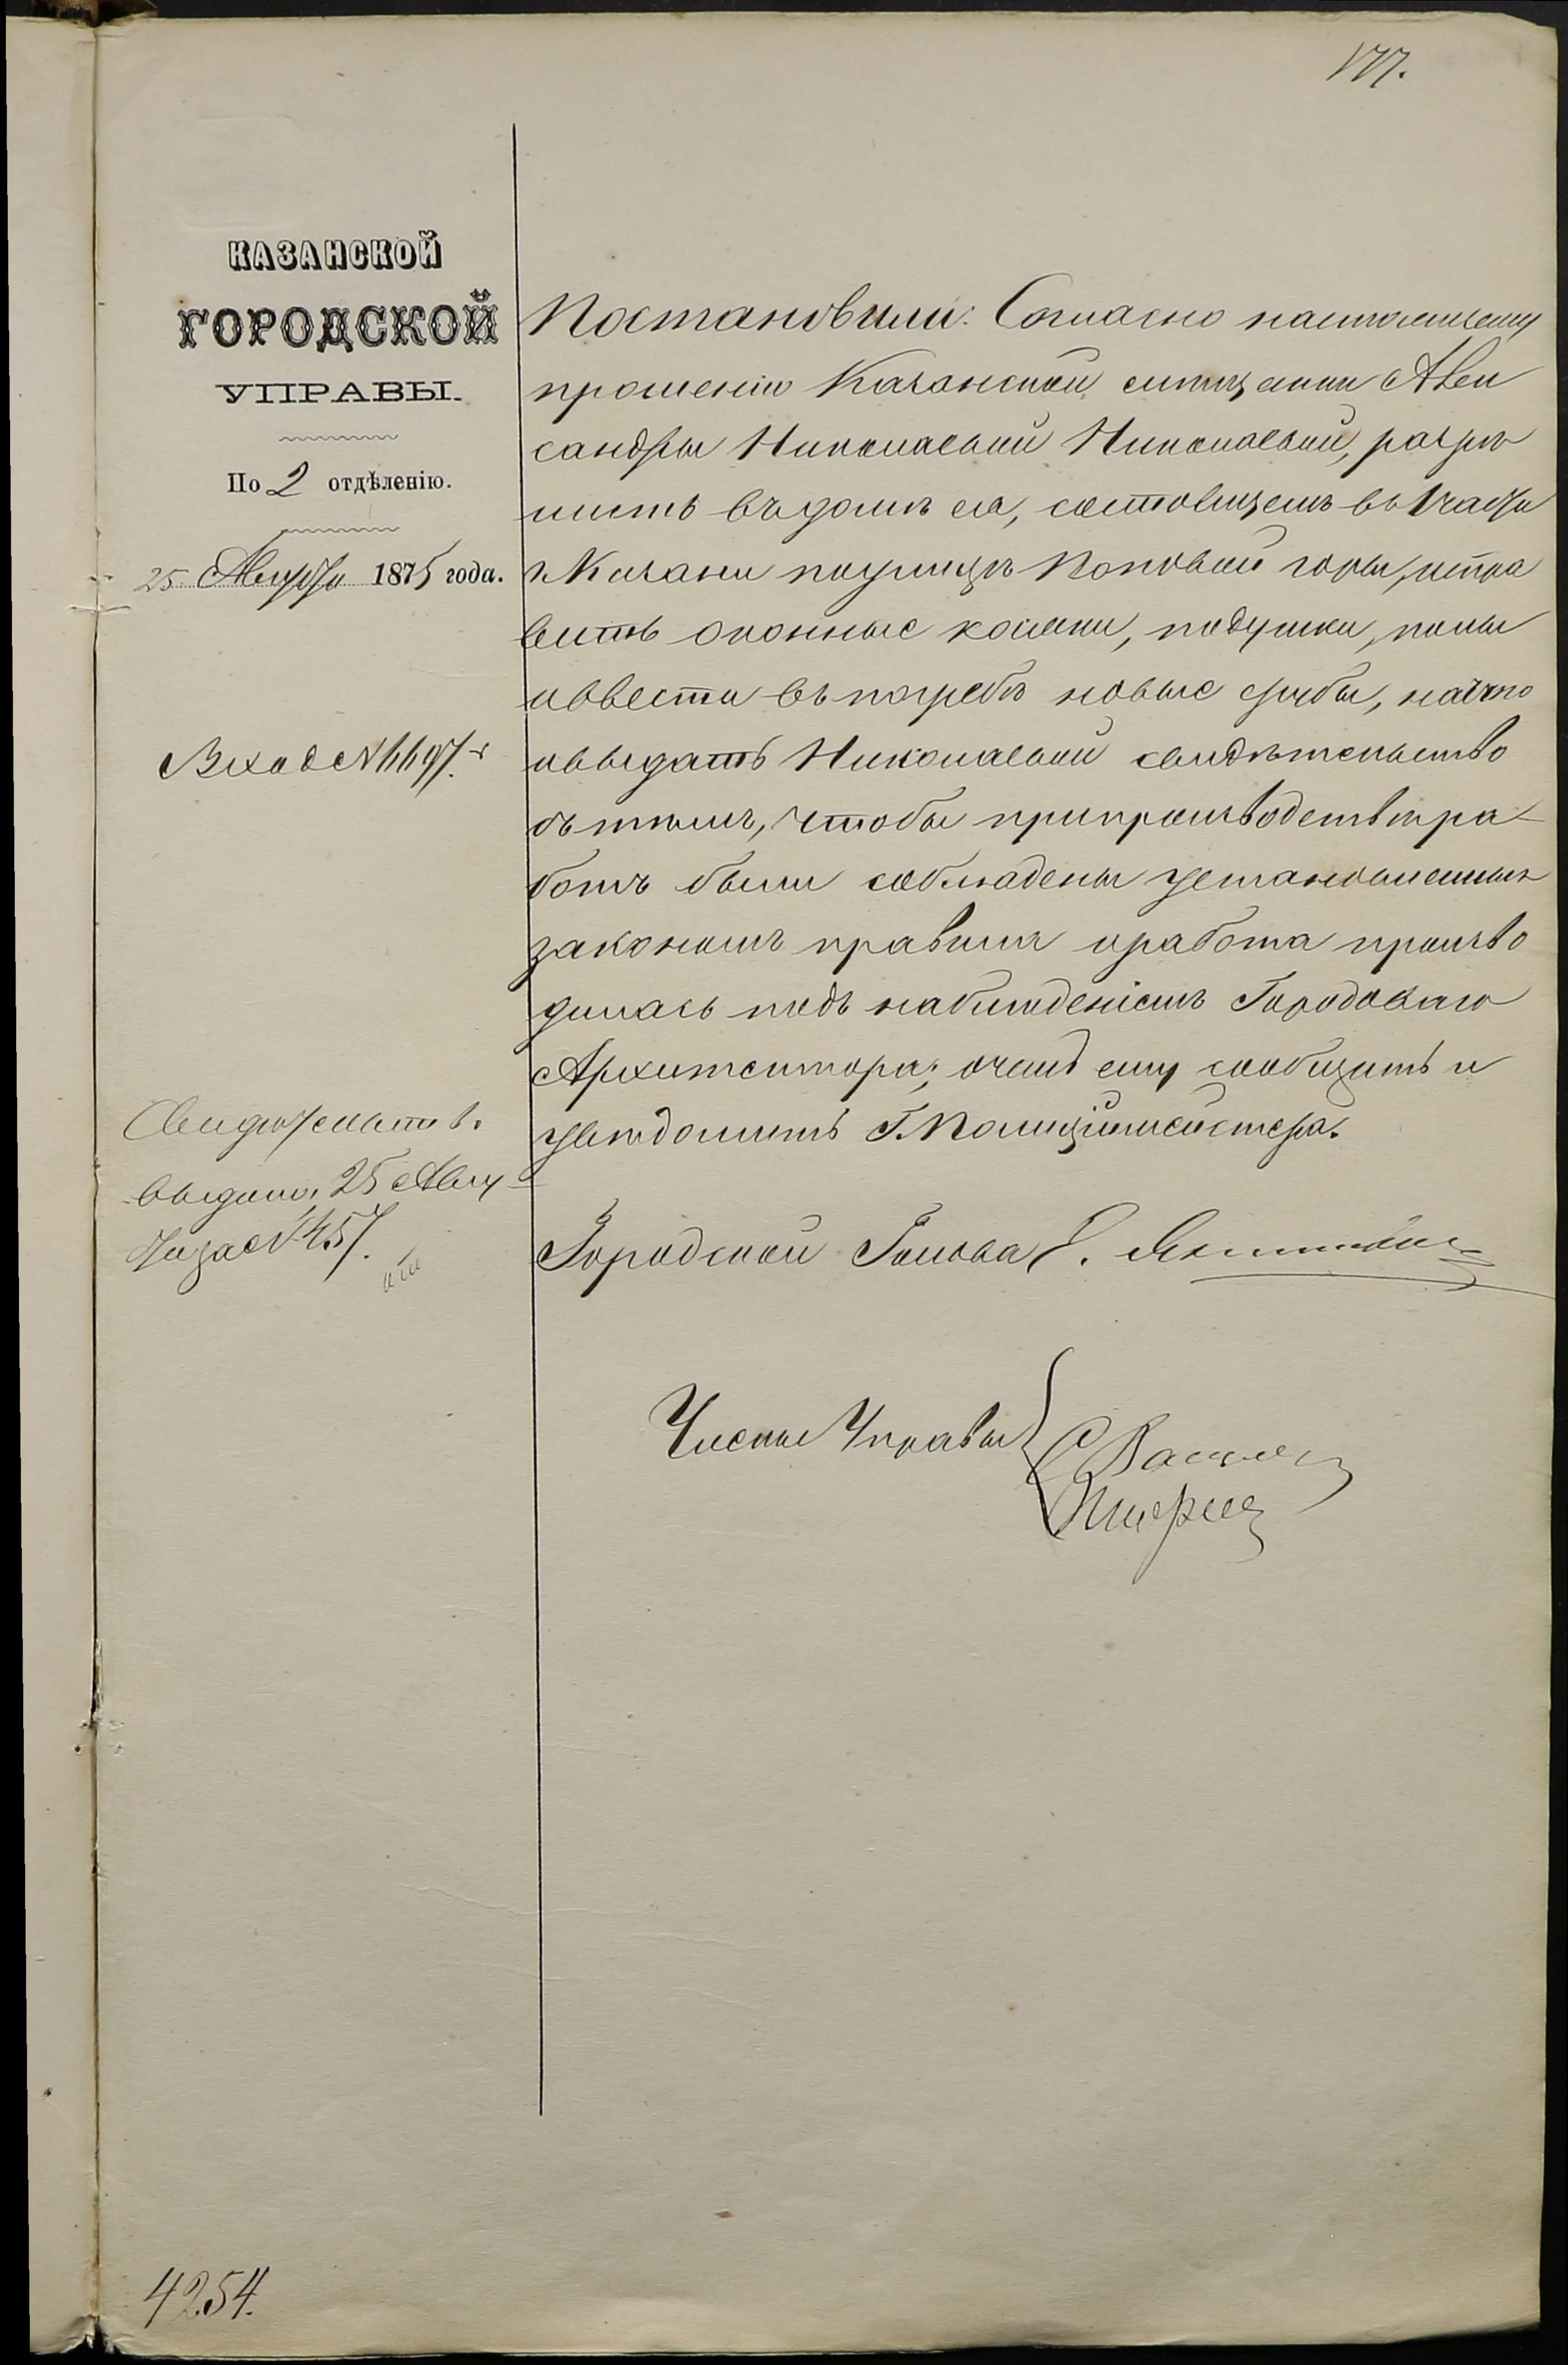 177.
КАЗАНСКОЙ
ГОРОДСКОЙ
УПРАВЫ.
По 2 отдѣленію.
25 Августа 1875 года.
Вход № 6697.
Свидѣтельств.
выдано, 25 Авгу
ста за № 457.
Постановили: Согласно настоящему
прошенію Казанской мѣщанки Алек
сандры Николаевой Николаевой, разрѣ
шить въ домѣ ея, состоящемъ въ 1 части
г. Казани по улицѣ Поповой горы, испра
вить оконные косяки, подушки, полы
и ввести въ погребъ новые срубы, на что
и выдать Николаевой свидѣтельство
съ тѣмъ, чтобы при производствѣ ра-
ботъ были соблюдены установленныя
закономъ правила и работа произво
дилась подъ наблюденіемъ Городоваго
Архитектора; о чемъ ему сообщить и
увѣдомить Г. Полиціймейстера.
Городской Голова
Члены Управы
4254.